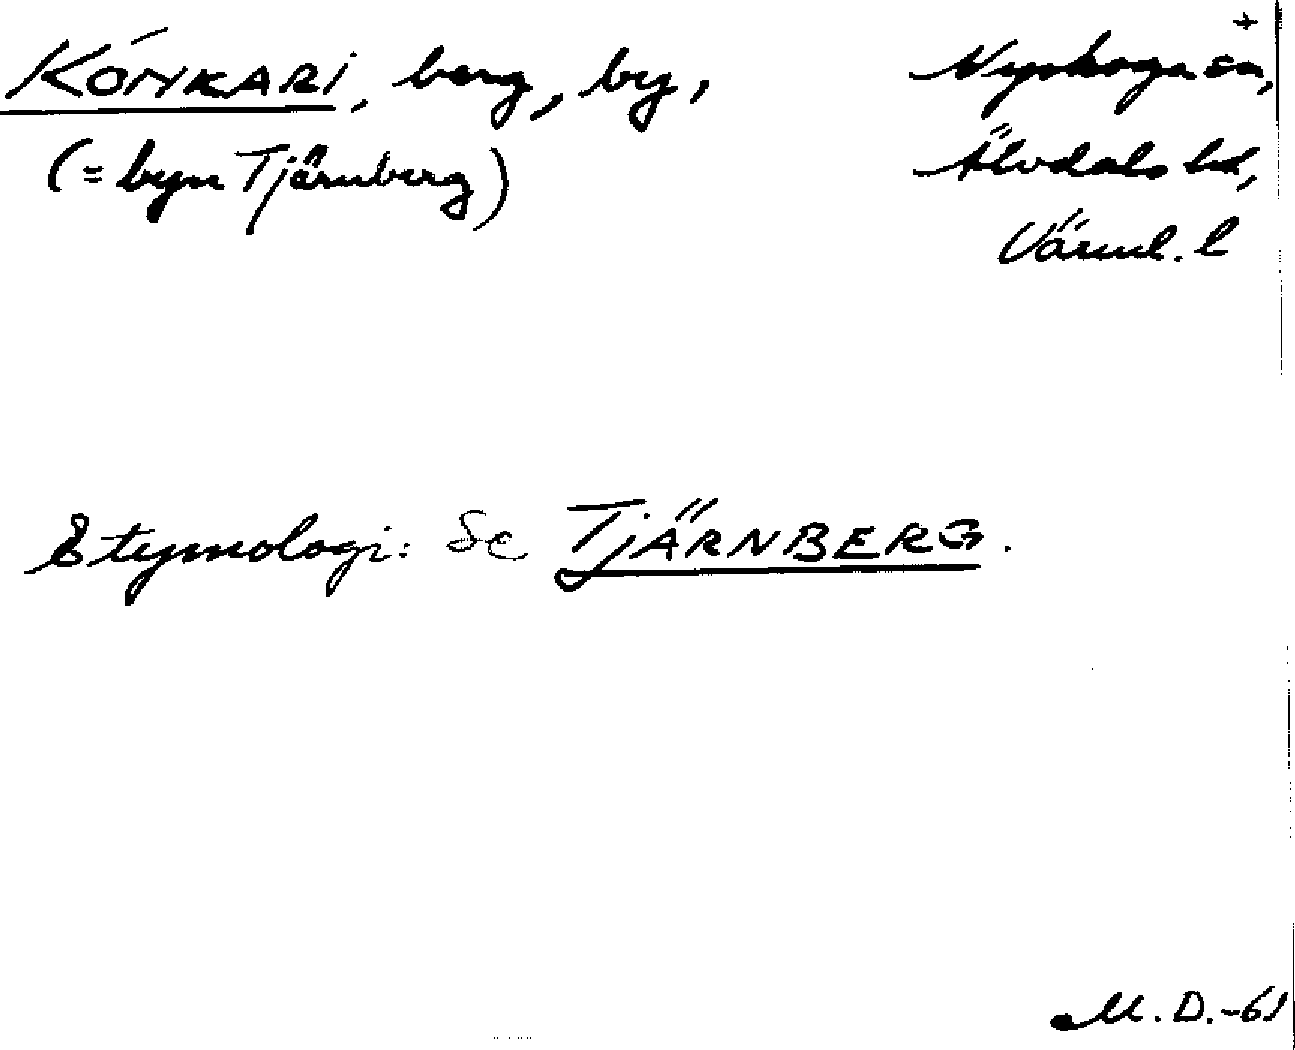 +
KÓNKARI, berg, by, Nyskoga sn,
(= byn Tjärnberg) Älvdals hd,
Värml. l
Etymologi: Se TJÄRNBERG.
M. D. -61